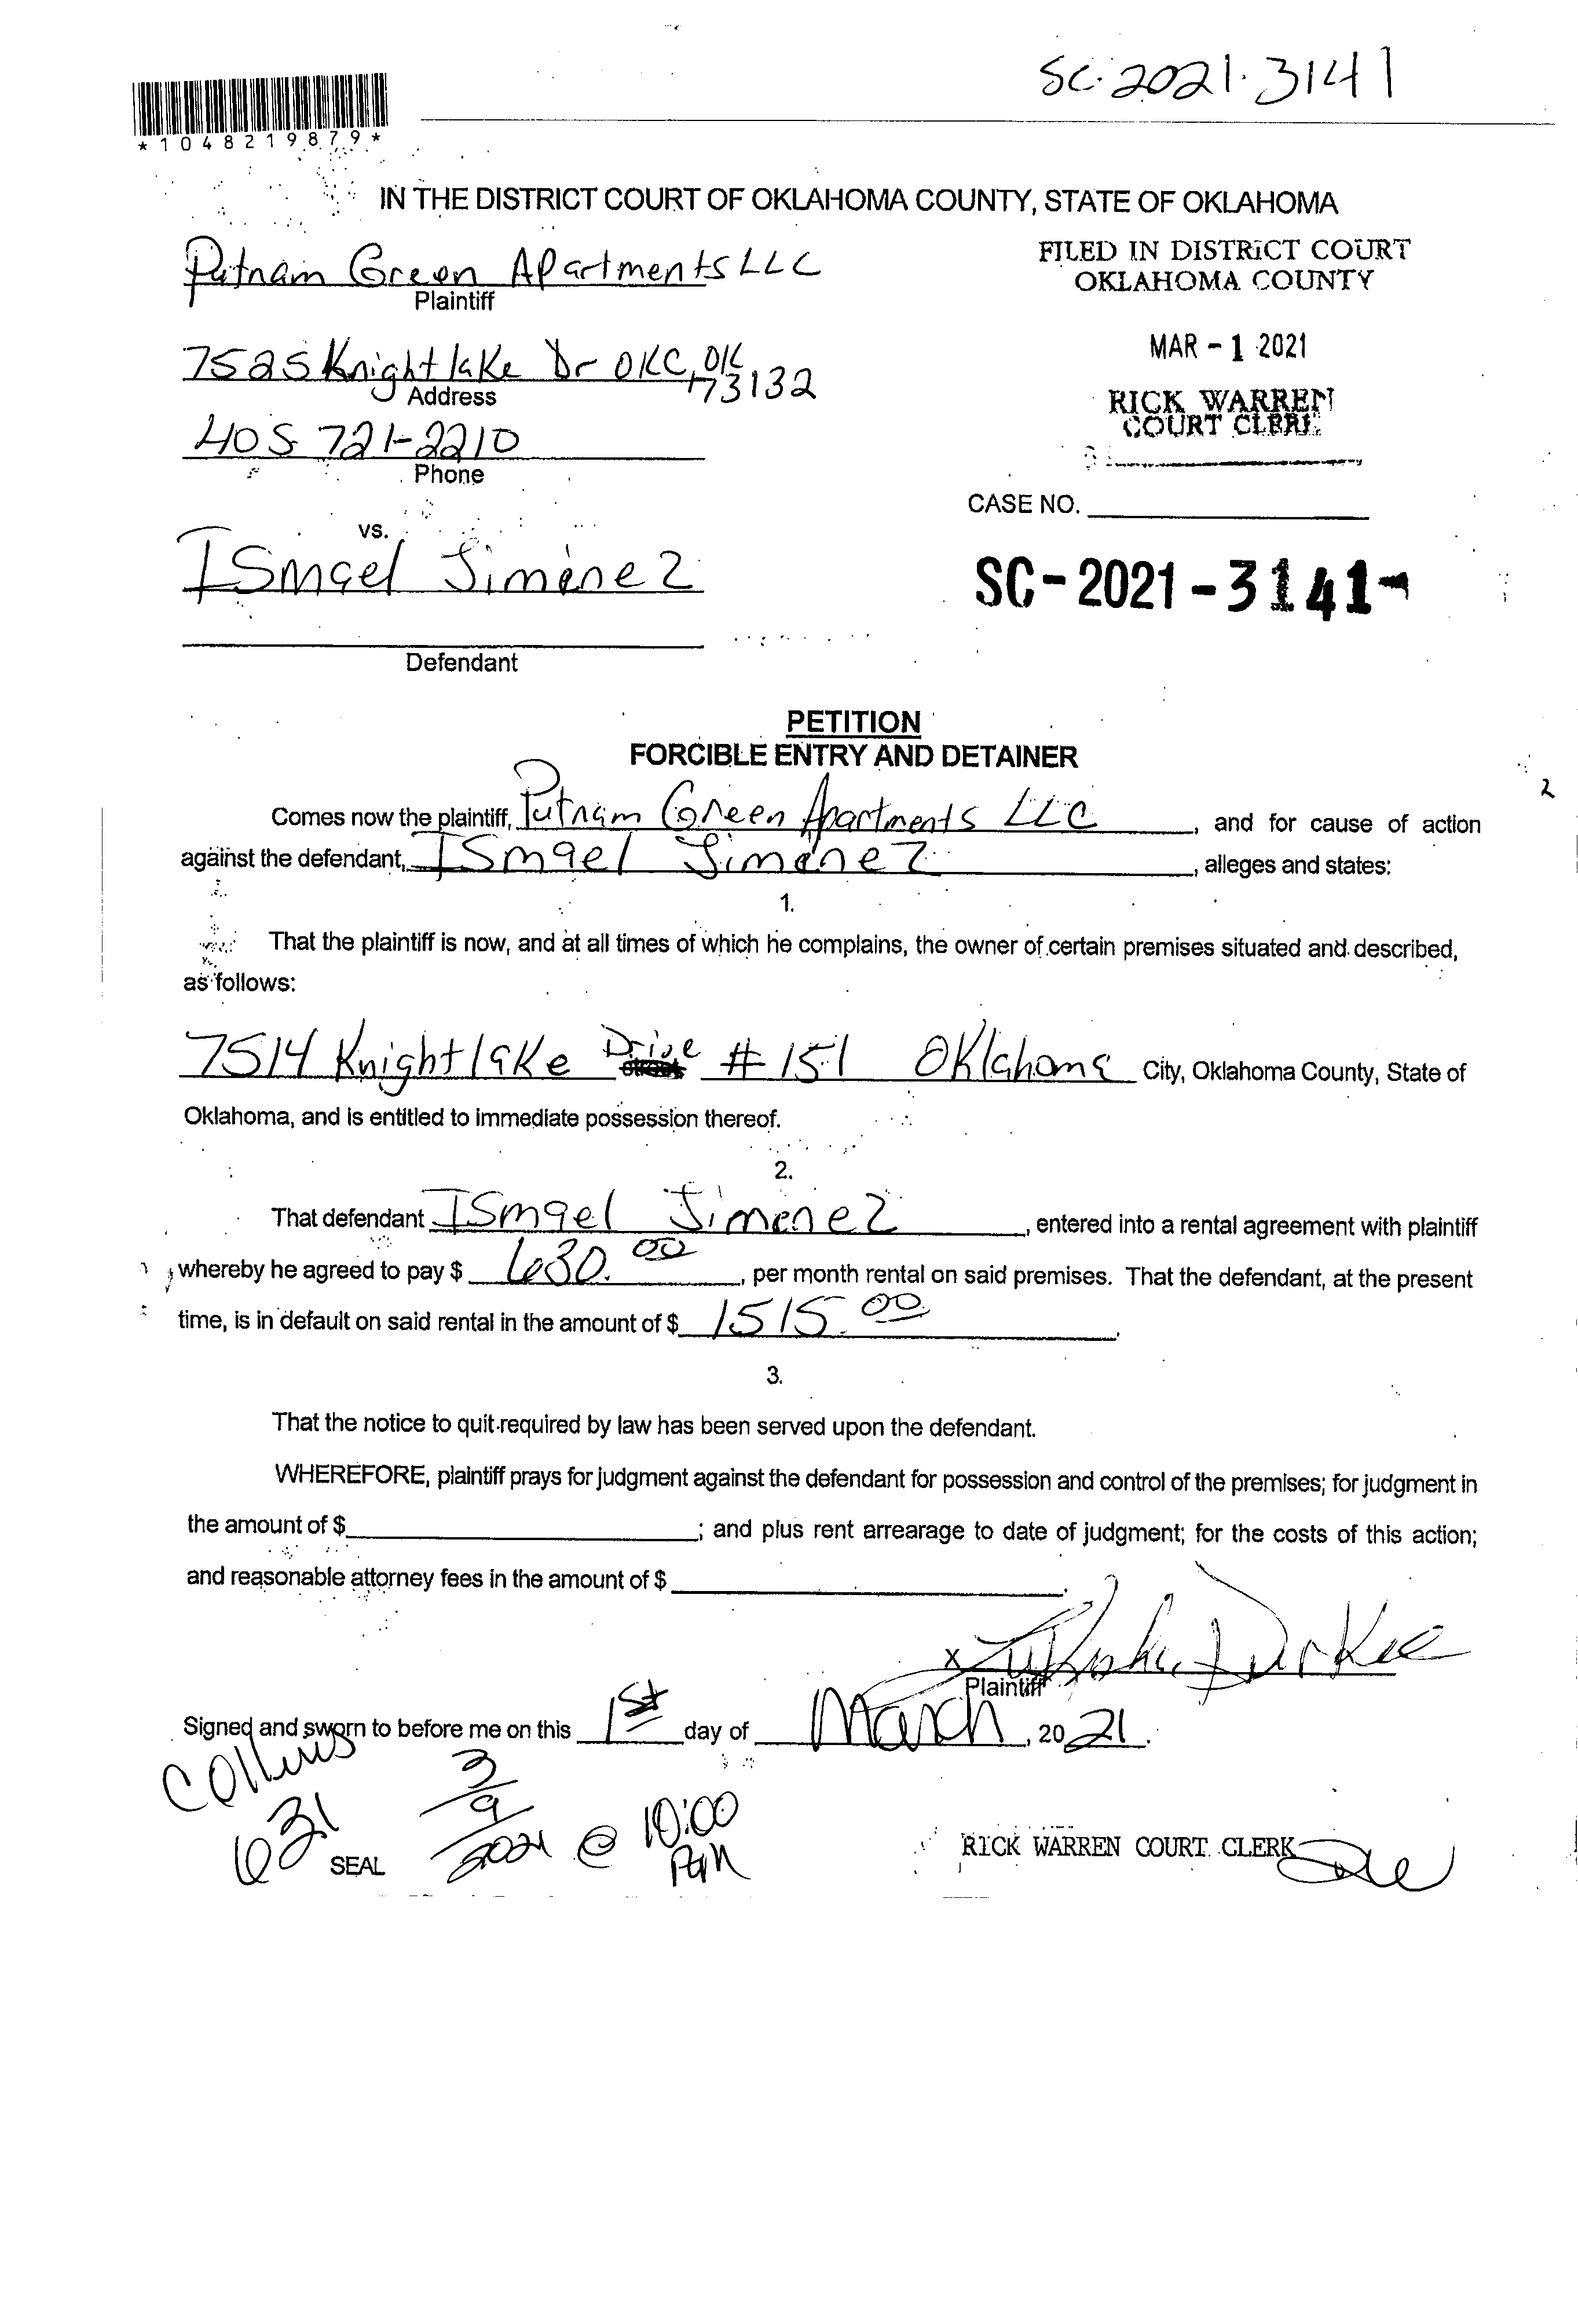 SC-2021-3141
*1048219879*
IN THE DISTRICT COURT OF OKLAHOMA COUNTY, STATE OF OKLAHOMA
Putnam Green Apartments LLC
Plaintiff
FILED IN DISTRICT COURT
OKLAHOMA COUNTY
7525 Knightlake Dr OKC, OK
73132
Address
MAR - 1 2021
RICK WARREN
COURT CLERK
405 721-2210
Phone
CASE NO.
vs.
Ismael Jimenez
SC-2021-3141
Defendant
PETITION
FORCIBLE ENTRY AND DETAINER
Comes now the plaintiff, Putnam Green Apartments LLC, and for cause of action
against the defendant, Ismael Jimenez, alleges and states:
1.
That the plaintiff is now, and at all times of which he complains, the owner of certain premises situated and described,
as follows:
7514 Knightlake Drive # 151 Oklahoma City, Oklahoma County, State of
Oklahoma, and is entitled to immediate possession thereof.
2.
That defendant Ismael Jimenez, entered into a rental agreement with plaintiff
whereby he agreed to pay $ 630.00, per month rental on said premises. That the defendant, at the present
time, is in default on said rental in the amount of $ 1515.00.
3.
That the notice to quit required by law has been served upon the defendant.
WHEREFORE, plaintiff prays for judgment against the defendant for possession and control of the premises; for judgment in
the amount of $ ; and plus rent arrearage to date of judgment; for the costs of this action;
and reasonable attorney fees in the amount of $ .
X Durkee
Plaintiff
Signed and sworn to before me on this 1st day of March, 2021.
Collins
631
3/9/2021 @ 10:00
SEAL
RICK WARREN COURT CLERK